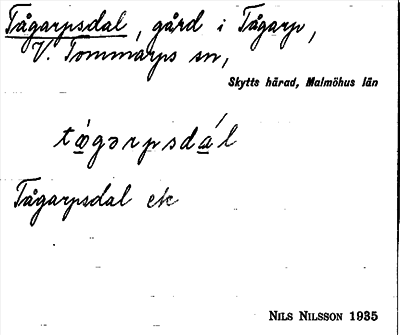 Tågarpsdal, gård i Tågarp,
V. Tommarps sn,
Skytts härad, Malmöhus län
tǻgərpsdál
Tågarpsdal ek
NILS NILSSON 1935